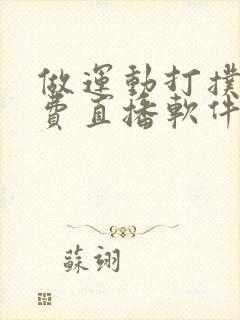 做運動打撲
費直播軟件
蘇翊